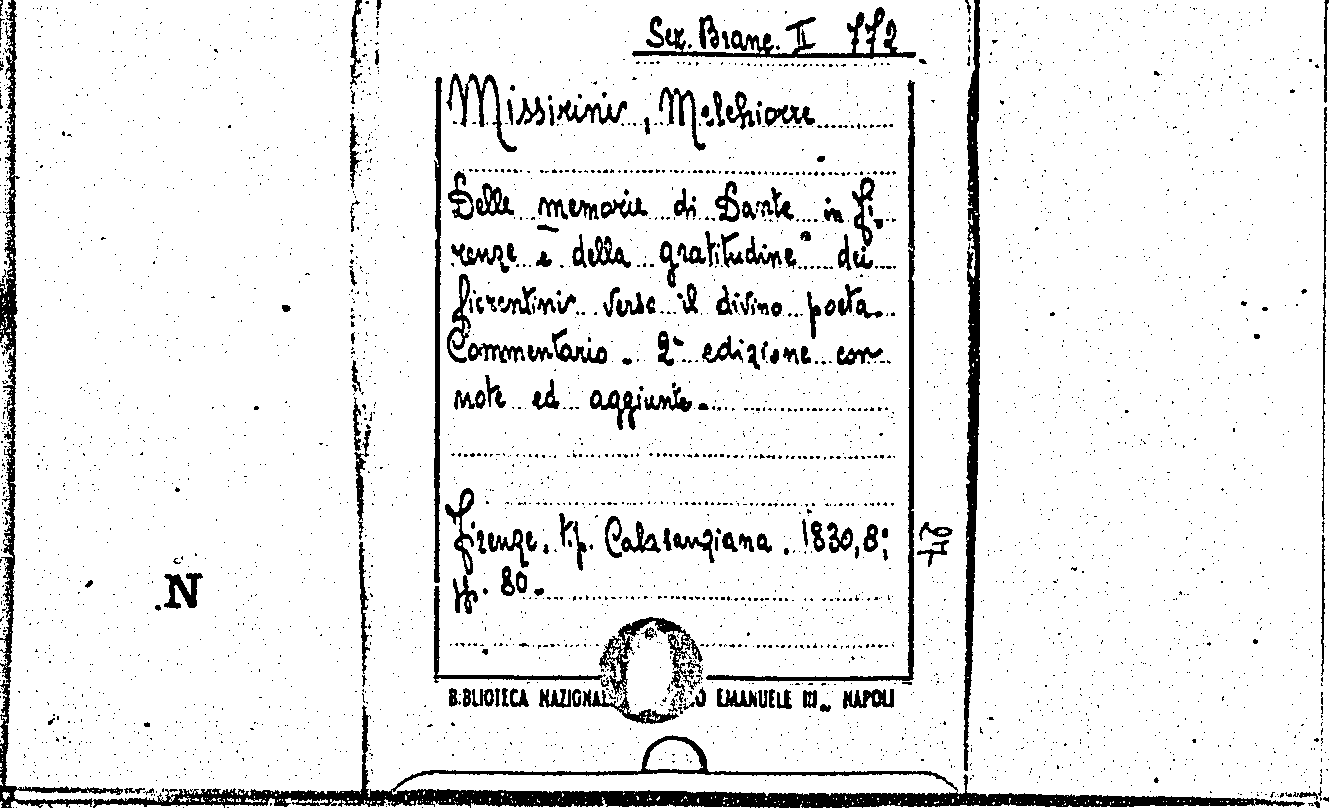 Sez. Branc. II 772
Missirini, Melchiorre
Delle memorie di Dante in Fi-
renze e della gratitudine dei
fiorentini verso il divino poeta.
Commentario. 2ª edizione con
note ed aggiunte.
Firenze. tip. Calasanziana. 1830, 8°;
pp. 80.
N
BIBLIOTECA NAZIONAL O EMANUELE III. NAPOLI